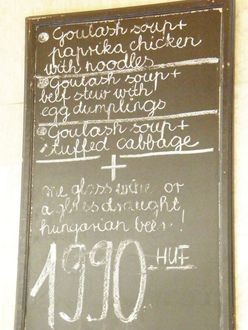 Goulash soup+
paprika chicken
with noodles
Goulash soup+
beef stew with
egg dumplings
Goulash soup+
stuffed cabbage
+
one glass wine or
a glass draught
hungarian beer!
1990 HUF